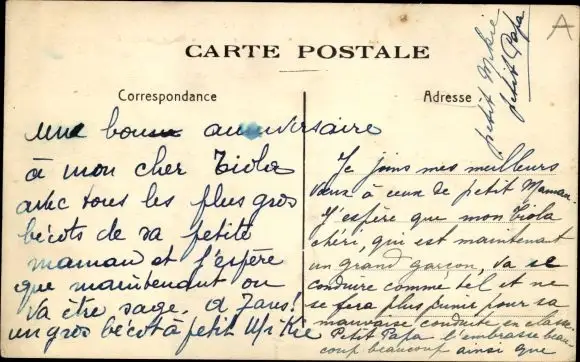 CARTE POSTALE
Correspondance
Adresse
A
une bonne anniversaire
à mon cher Tiola
avec tous les plus gros
bécots de sa petite
maman et j'espère
que maintenant on
va être sage. A Zans!
un gros bécot à petit Mikie
Je joins mes meilleurs
vœux à ceux de petit Maman.
J'espère que mon Tiola
chéri, qui est maintenant
un grand garçon, va se
conduire comme tel et ne
se fera plus punir pour sa
mauvaise conduite en classe.
Petit Papa l'embrasse beau
coup beaucoup ainsi que
petit Mikie
petit Papa